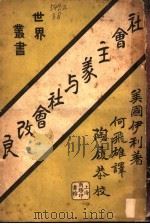 世界
叢書
社會主義与社會改良
美國伊利著
何飛雄譯
陶履恭校